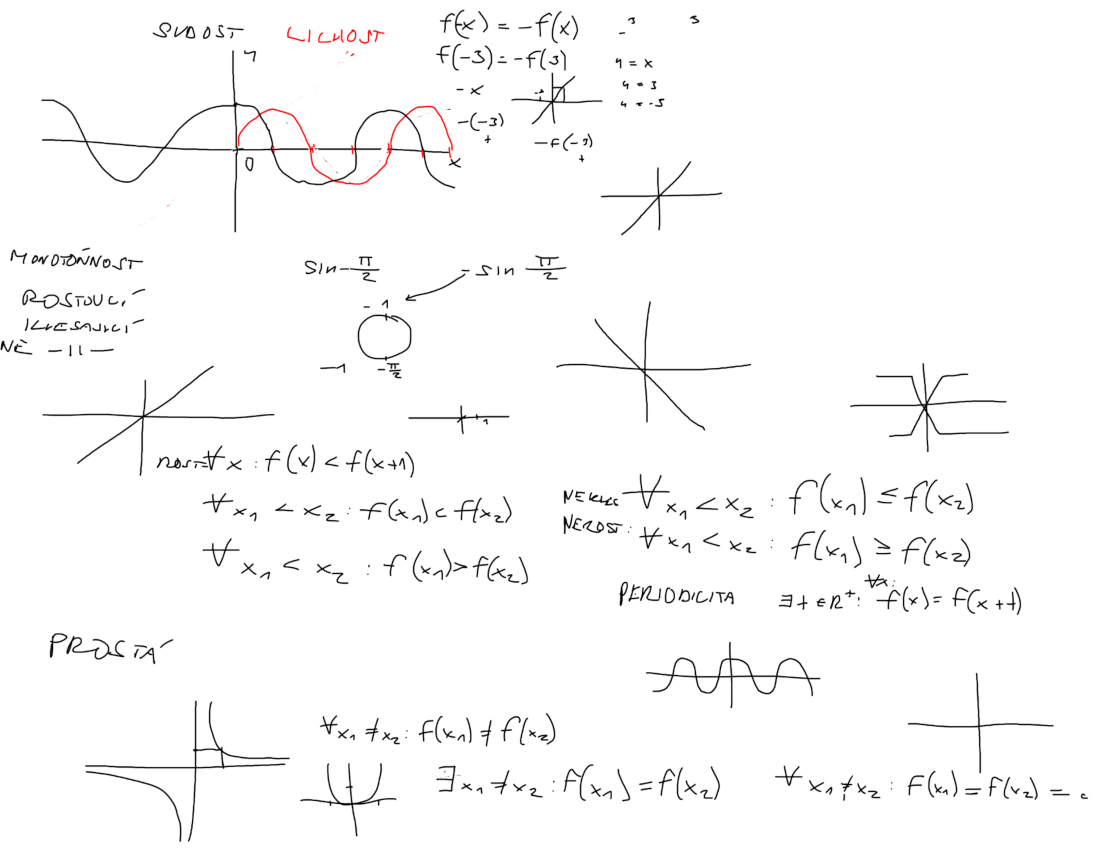 SUDOST LICHOST
y
0
x
f(-x) = -f(x)
f(-3) = -f(3)
-x
-(-3)
+
-f(-3)
+
3 3
-
y = x
y = 3
y = -3
MONOTÓNNOST
ROSTOUCÍ
KLESAJÍCÍ
NE -11-
sin -π/2
-sin π/2
-1
-1
-π/2
ROST: ∀x : f(x) < f(x+1)
∀x1 < x2 : f(x1) < f(x2)
∀x1 < x2 : f(x1) > f(x2)
NEKLES ∀x1 < x2 : f(x1) ≤ f(x2)
NEROST: ∀x1 < x2 : f(x1) ≥ f(x2)
PERIODICITA ∃t ∈ R+: ∀x: f(x) = f(x+t)
PROSTÁ
∀x1 ≠ x2 : f(x1) ≠ f(x2)
∃x1 ≠ x2 : f(x1) = f(x2)
∀x1 ≠ x2 : f(x1) = f(x2) = c